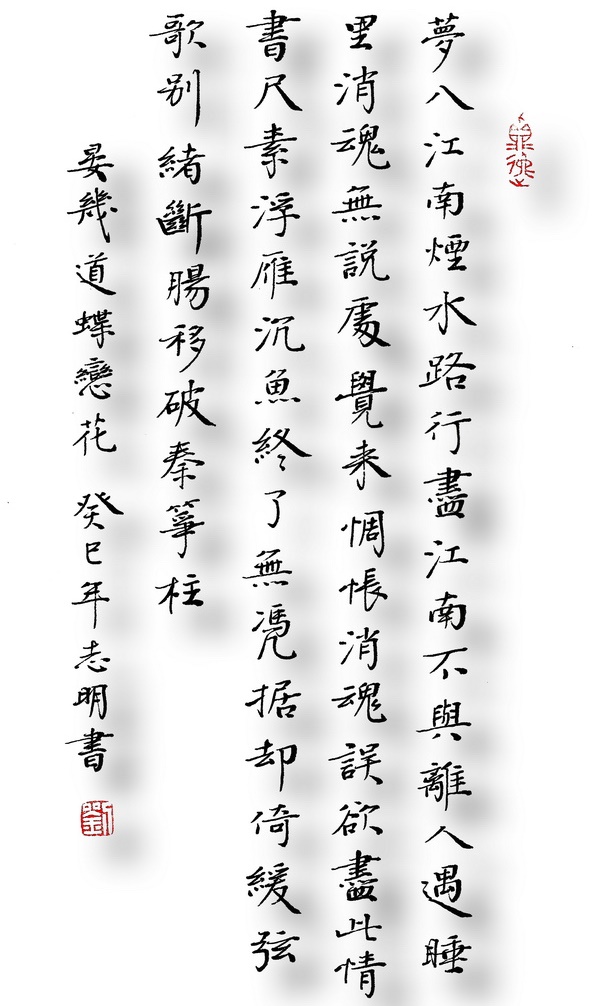 夢入江南煙水路行盡江南不與離人遇睡
里消魂無說處覺来惆悵消魂誤欲盡此情
書尺素浮雁沉魚終了無憑据却倚緩弦
歌别緒斷腸移破秦箏柱
晏幾道蝶戀花 癸巳年志明書
劉